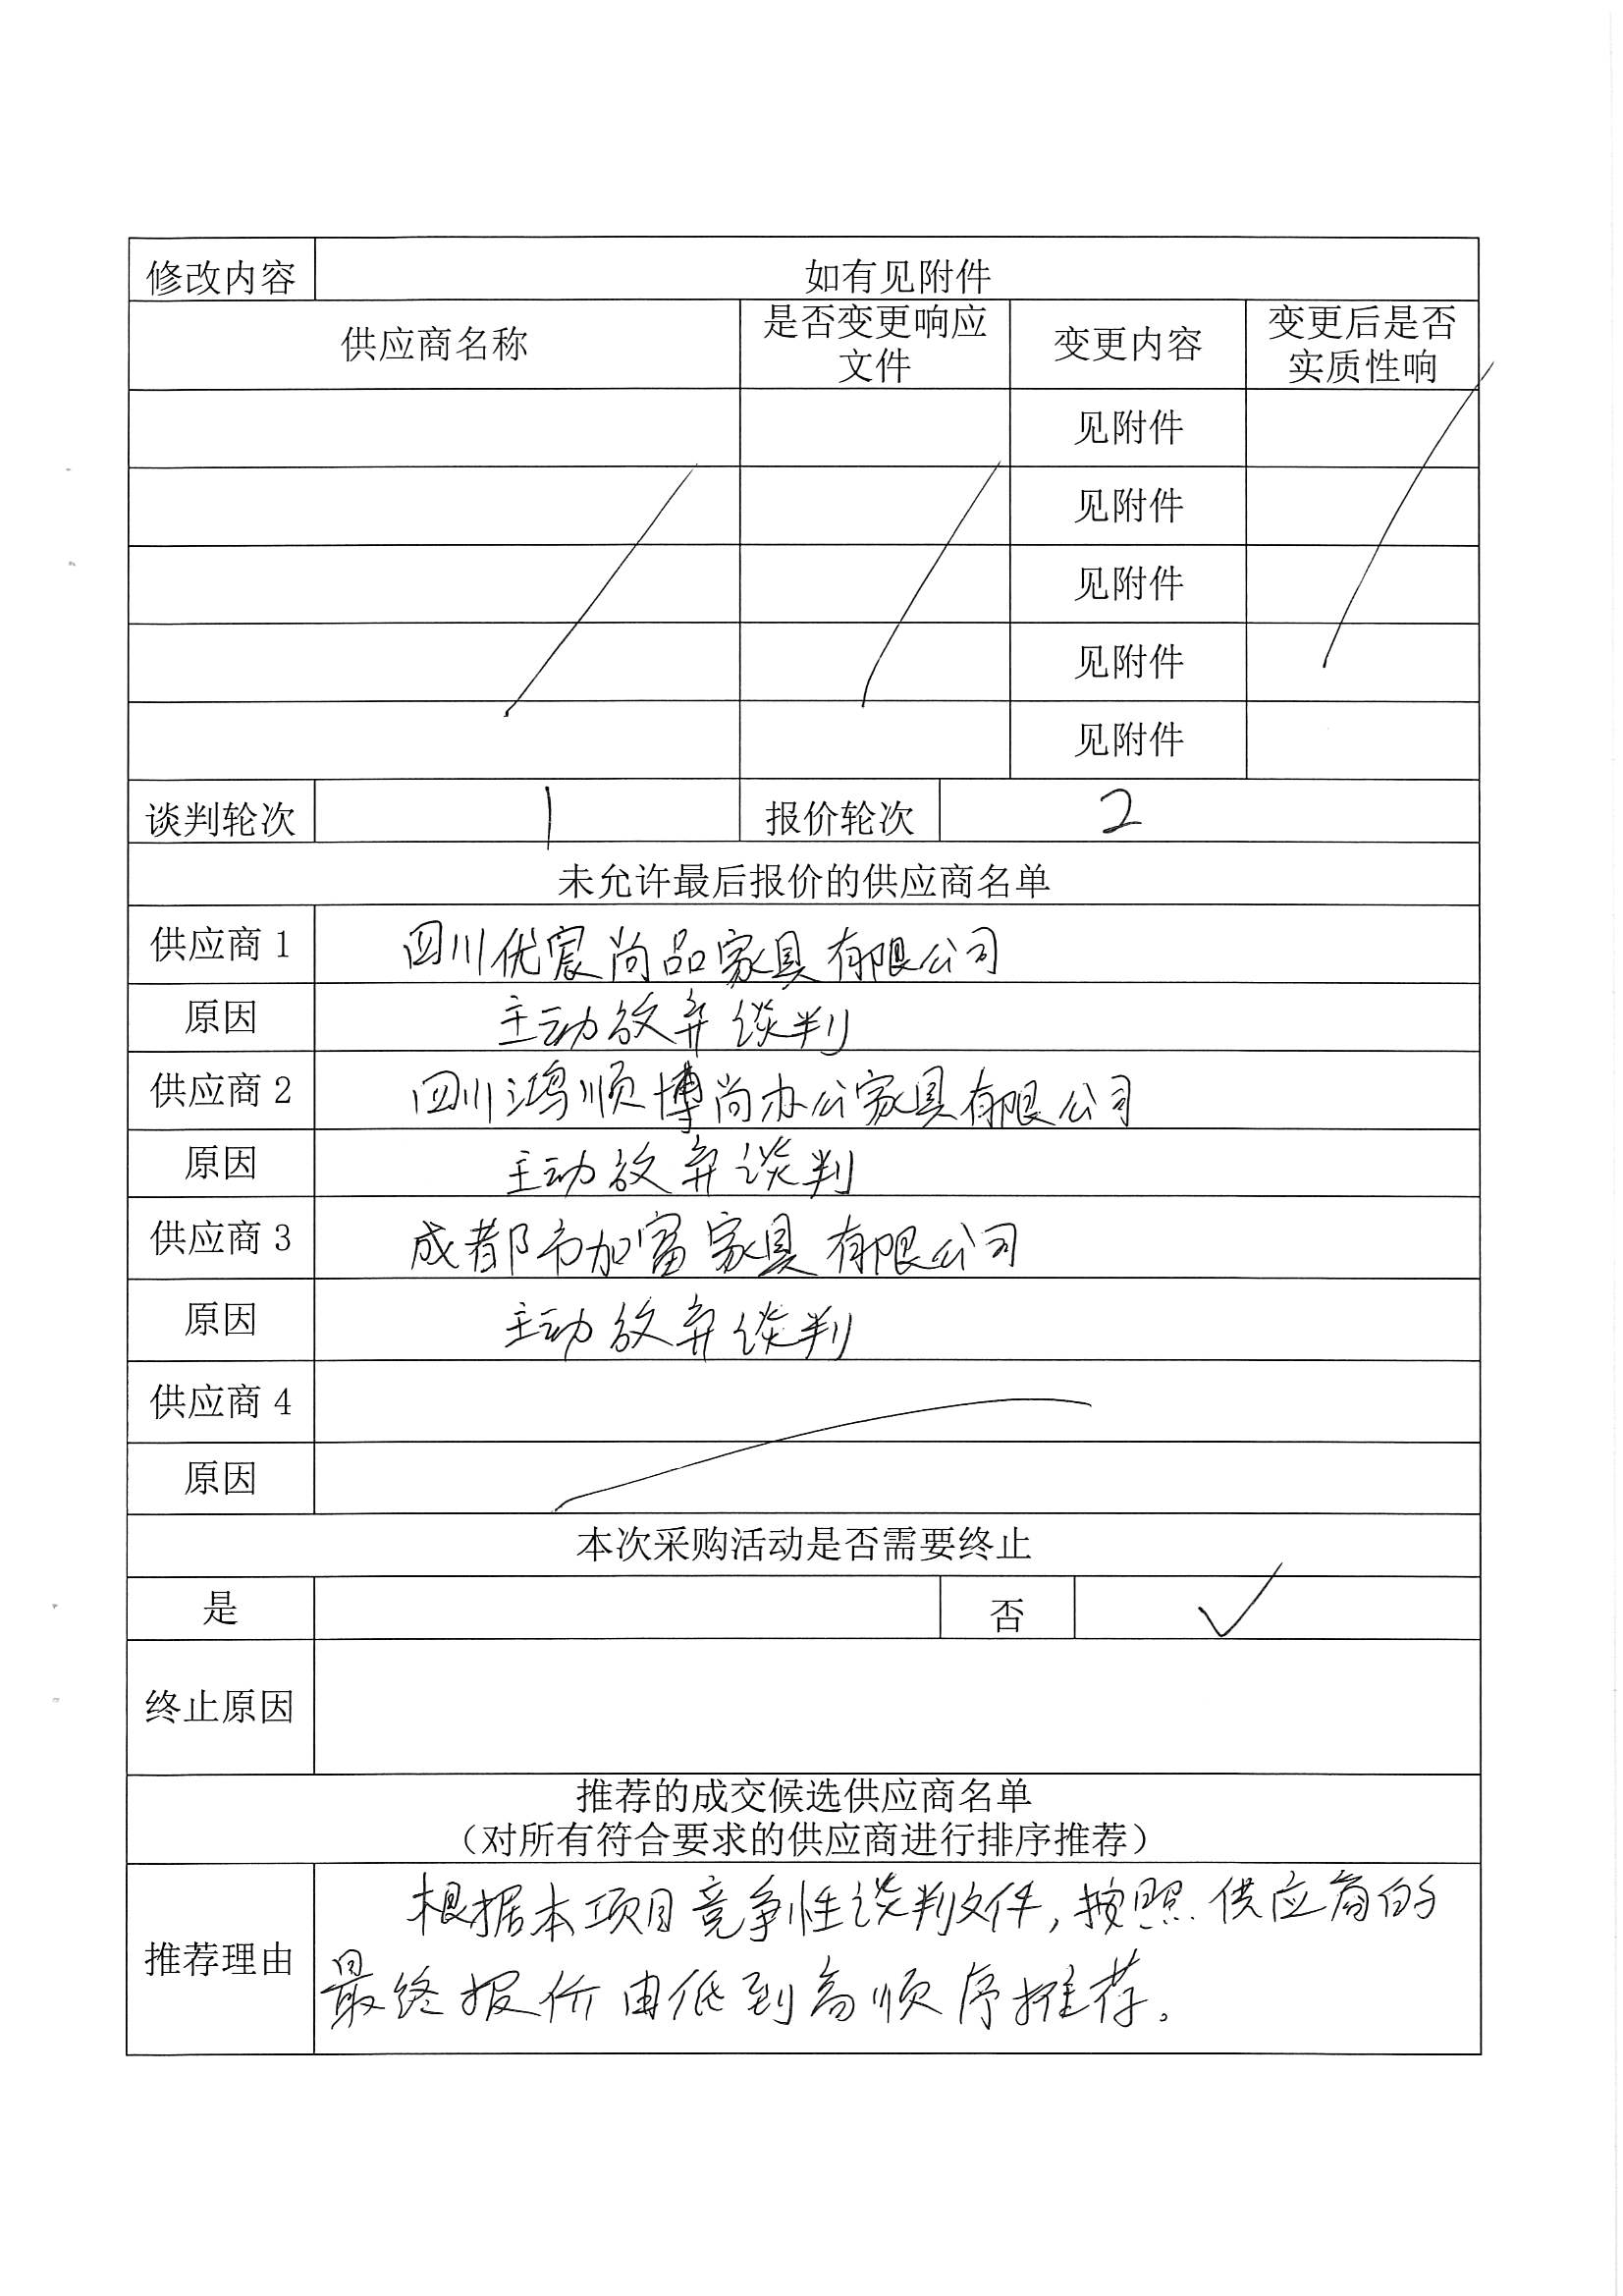 修改内容 如有见附件
供应商名称 是否变更响应文件 变更内容 变更后是否实质性响
见附件
见附件
见附件
见附件
见附件
谈判轮次 1 报价轮次 2
未允许最后报价的供应商名单
供应商1 四川优宸尚品家具有限公司
原因 主动放弃谈判
供应商2 四川鸿顺博尚办公家具有限公司
原因 主动放弃谈判
供应商3 成都市加富家具有限公司
原因 主动放弃谈判
供应商4
原因
本次采购活动是否需要终止
是 否 ✓
终止原因
推荐的成交候选供应商名单
（对所有符合要求的供应商进行排序推荐）
推荐理由 根据本项目竞争性谈判文件,按照供应商的
最终报价由低到高顺序推荐。